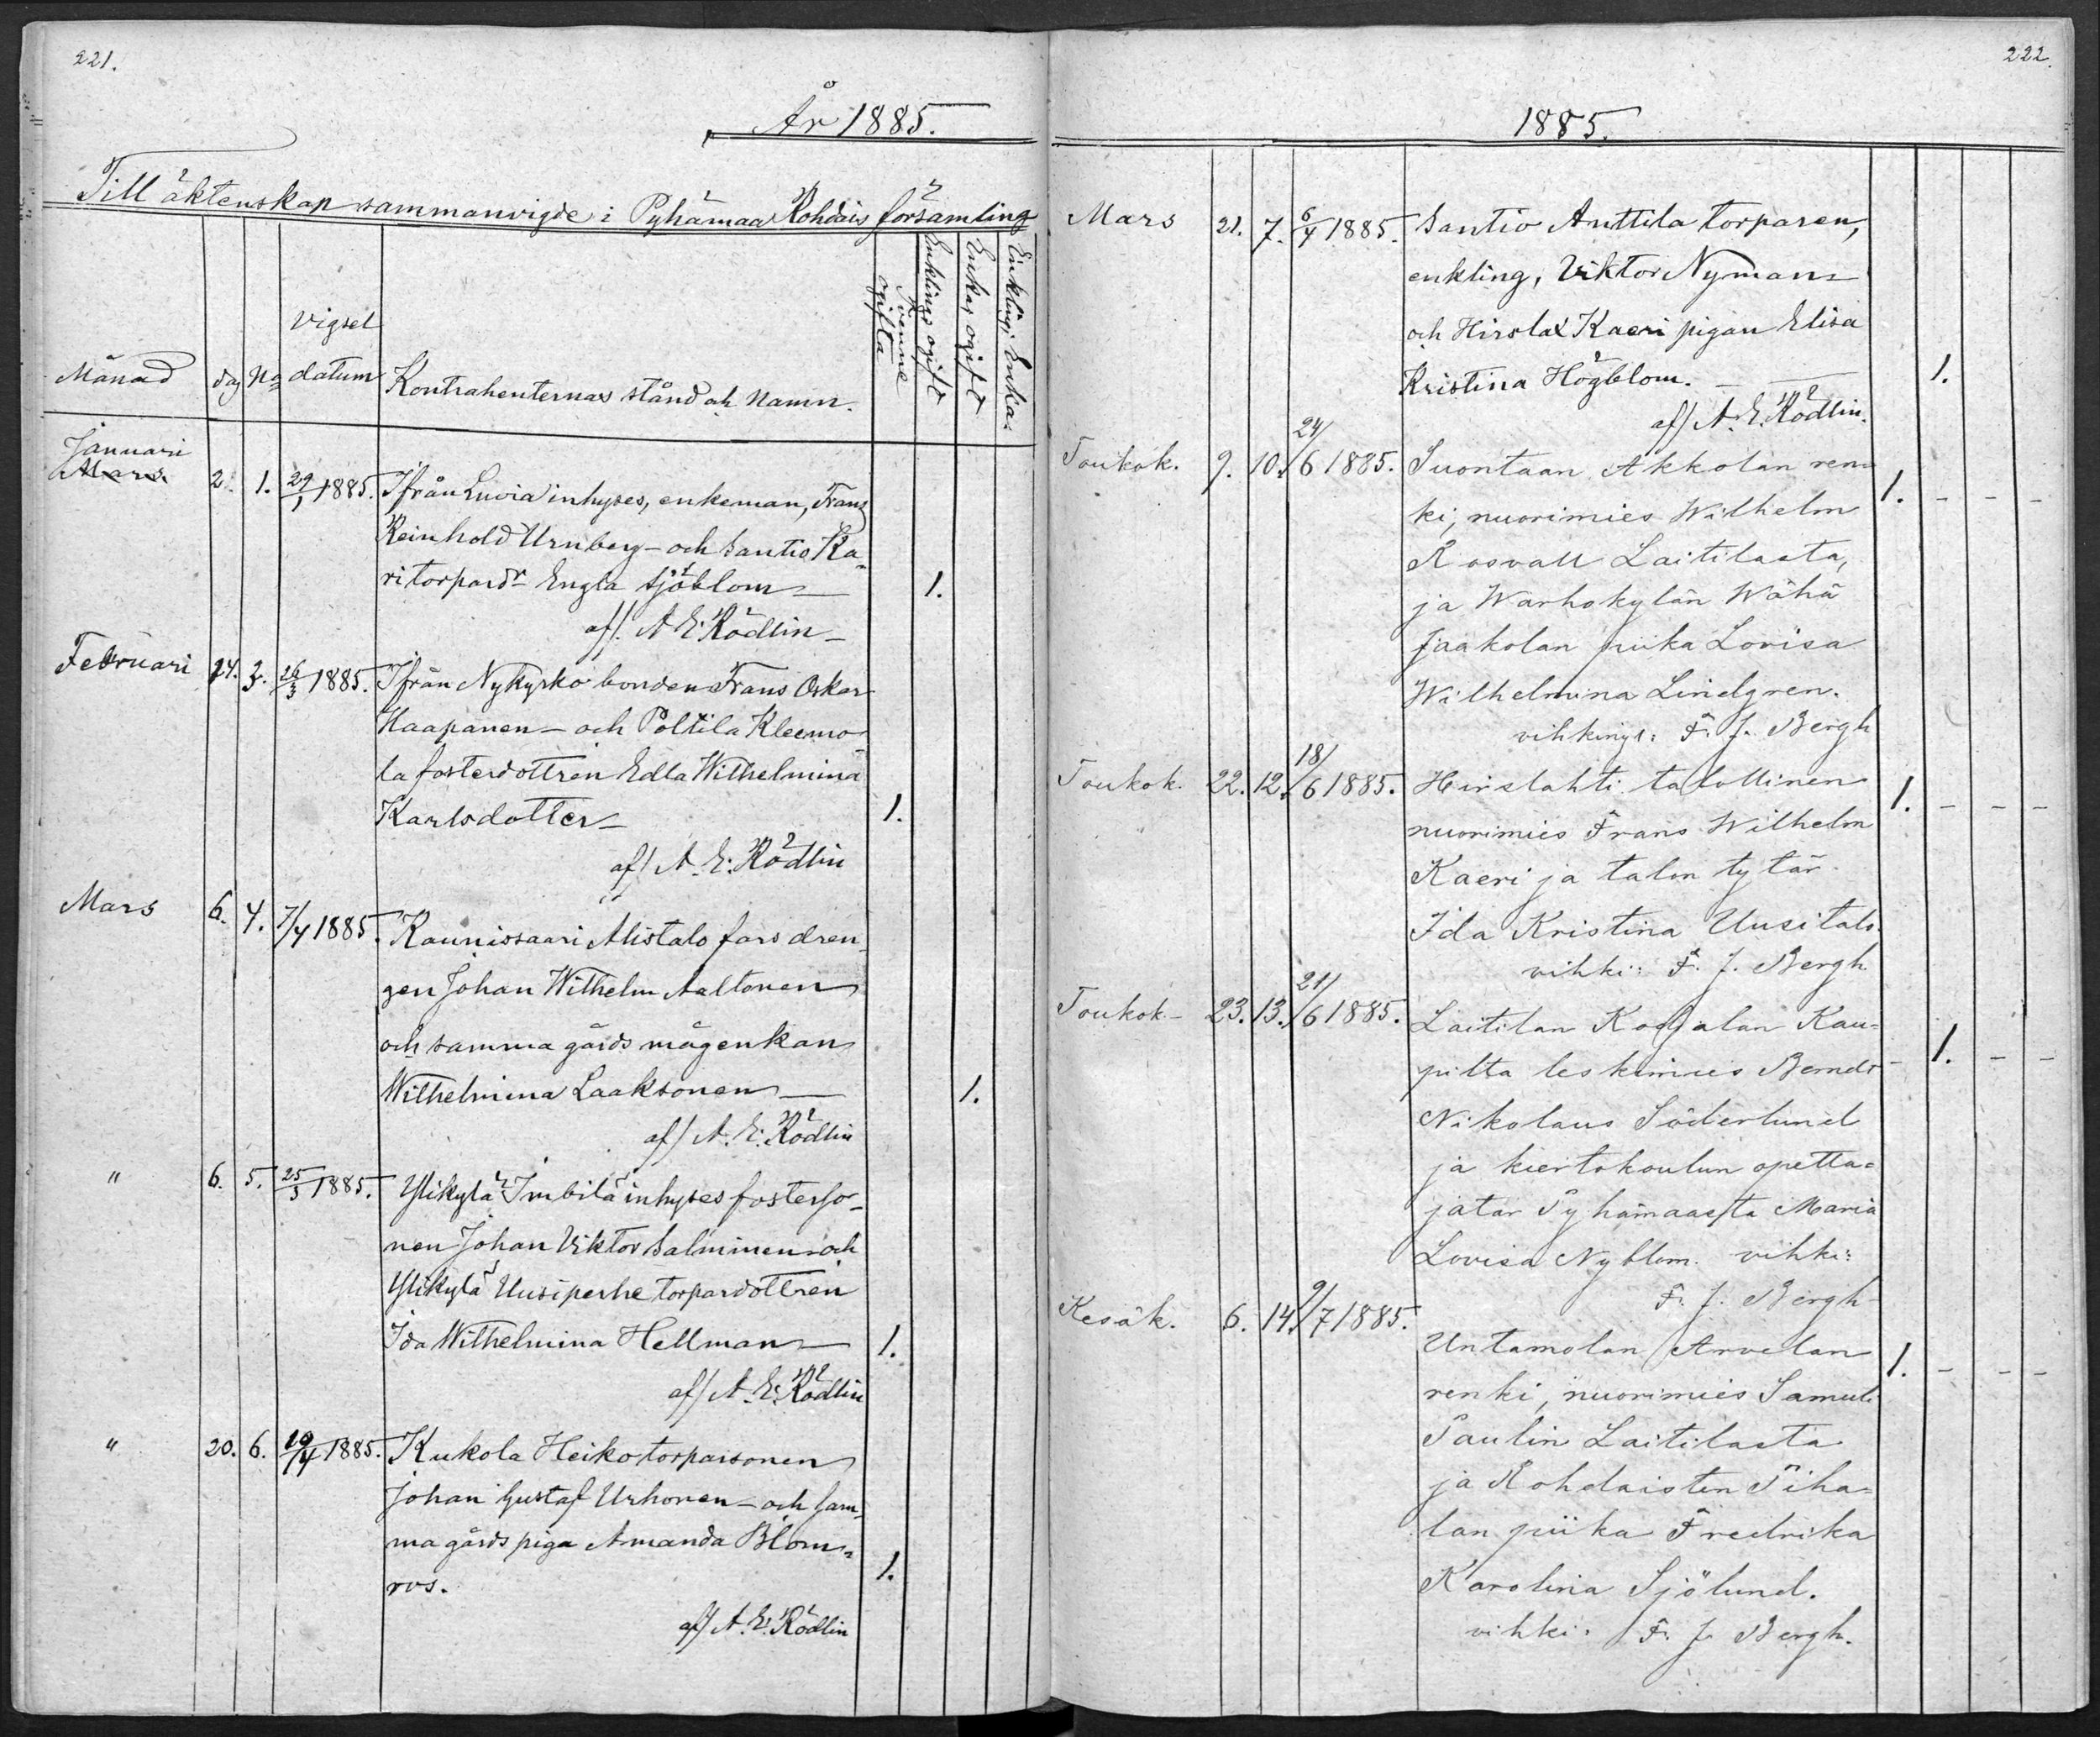 221.
År 1885.
Till äktenskap sammanvigde i Pyhämaa Rohdais församling
Månad dag No Vigsel datum Kontrahenternas stånd och Namn. Tvenne ogifta Enkling, ogift Enka, ogift Enkling, Enka.
Januari
Mars.
2. 1. 29/1 1885. Ifrån Luvia inhyses, enkeman, Frans
Reinhold Urnberg - och Santio Ka-
ri torpardr Engla Sjöblom — 1.
af/. A E. Rödlin —
Februari 14. 3. 26/3 1885. Ifrån Nykyrko bonden Frans Oskar
Haapanen - och Polttila Kleemo-
la fosterdottren Edla Wilhelmina
Karlsdotter — 1.
af/ A. E. Rödlin
Mars 6. 4. 7/4 1885. Kaunissaari Alistalo fars dren-
gen Johan Wilhelm Aaltonen
och samma gårds mågenkan
Wilhelmina Laaksonen — 1.
af/ A. E. Rödlin
" 6. 5. 25/3 1885. Ylikylä Imbilä inhyses fosterso-
nen Johan Viktor Salminen och
Ylikylä Uusiperhe torpardottren
Ida Wilhelmina Hellman — 1.
af/ A. E. Rödlin
" 20. 6. 10/4 1885. Kukola Heiko torparsonen
Johan Gustaf Urhonen - och sam-
ma gårds piga Amanda Blom-
ros. 1.
af/ A. E. Rödlin
222.
1885.
Mars 21. 7. 6/4 1885. Santio Anttila torparen,
enkling, Viktor Nyman -
och Hirslax Kaeri pigan Elisa
Kristina Högblom. — 1.
af/ A. E. Rödlin.
Toukok. 9. 10. 24/6 1885. Suontaan Akkolan ren-
ki, nuorimies Wilhelm 1. - - -
Rosvall Laitilasta,
ja Warhokylän Wähä
Jaakolan piika Lovisa
Wilhelmina Lindgren.
vihkinyt: F. J. Bergh
Toukok. 22. 12. 18/6 1885. Hirslahti talollinen
nuorimies Frans Wilhelm 1. - - -
Kaeri ja talon tytär
Ida Kristina Uusitalo.
vihki: F. J. Bergh
Toukok. - 23. 13. 21/6 1885. Laitilan Kodjalan Kau-
pilta leskimies Berndt - 1. - -
Nikolaus Söderlund
ja kiertokoulun opetta-
jatar Pyhämaasta Maria
Lovisa Nyblom. vihki:
F. J. Bergh
Kesäk. 6. 14. 9/7 1885.
Untamolan Arvelan 1. - - -
renki, nuorimies Samuli
Paulin Laitilasta
ja Rohdaisten Piha-
lan piika Fredrika
Karolina Sjölund.
vihki: F. J. Bergh.